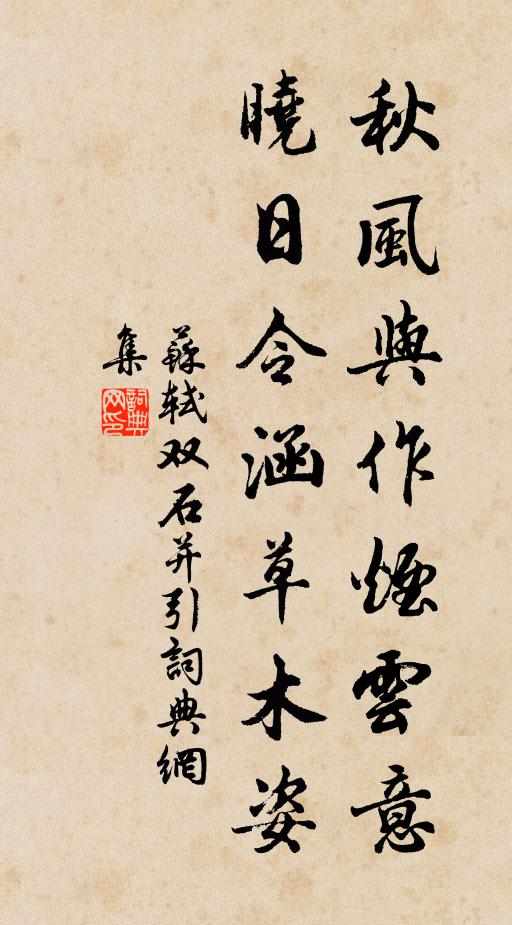 秋風與作煙雲意
曉日令涵草木姿
蘇軾双石并引詞典網
集
詞典
网印